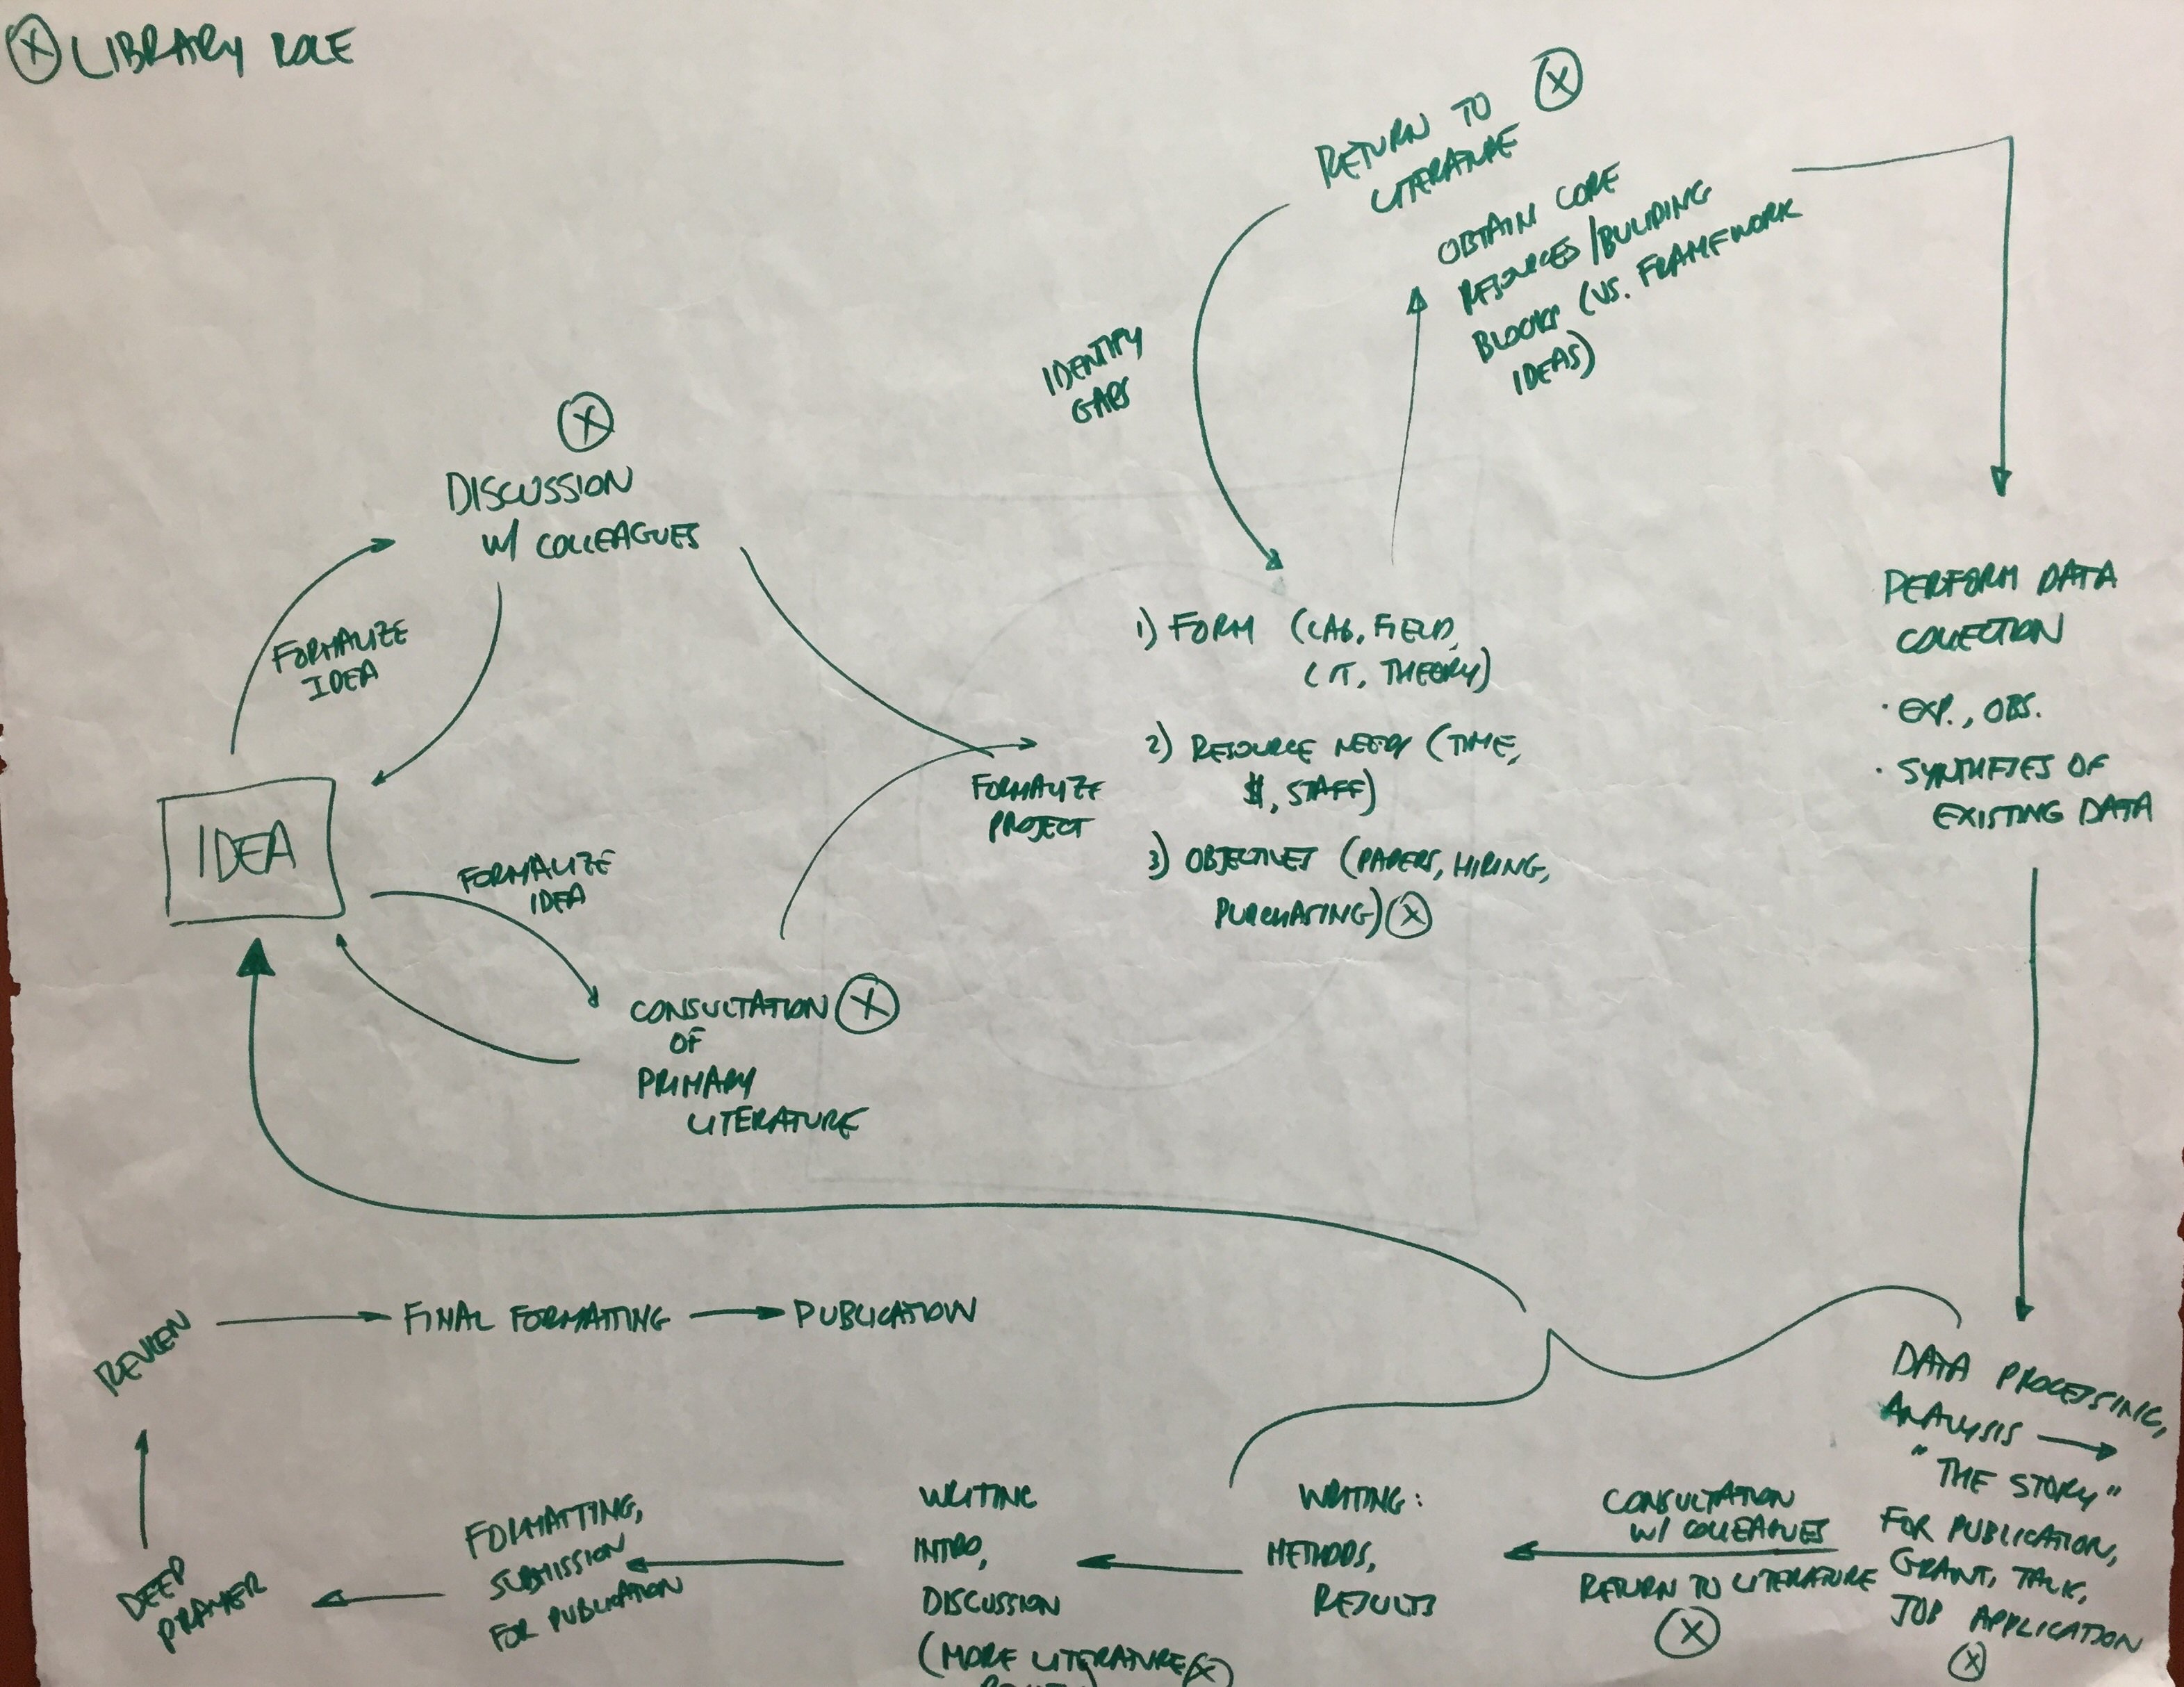 Ⓧ LIBRARY ROLE
RETURN TO Ⓧ
LITERATURE
OBTAIN CORE
RESOURCES/BUILDING
BLOCKS (VS. FRAMEWORK
IDEAS)
IDENTIFY
GAPS
Ⓧ
DISCUSSION
W/ COLLEAGUES
FORMALIZE
IDEA
IDEA
FORMALIZE
IDEA
CONSULTATION Ⓧ
OF
PRIMARY
LITERATURE
FORMALIZE
PROJECT
1) FORM (LAB, FIELD,
LIT, THEORY)
2) RESOURCE NEEDS (TIME,
$, STAFF)
3) OBJECTIVES (PAPERS, HIRING,
PURCHASING) Ⓧ
PERFORM DATA
COLLECTION
· EXP., OBS.
· SYNTHESIS OF
EXISTING DATA
DATA PROCESSING,
ANALYSIS
"THE STORY"
FOR PUBLICATION,
GRANT, TALK,
JOB APPLICATION
Ⓧ
CONSULTATION
W/ COLLEAGUES
RETURN TO LITERATURE
Ⓧ
WRITING:
METHODS,
RESULTS
WRITING
INTRO,
DISCUSSION
(MORE LITERATURE Ⓧ
FORMATTING,
SUBMISSION
FOR PUBLICATION
DEEP
PRAYER
REVIEW
FINAL FORMATTING
PUBLICATION